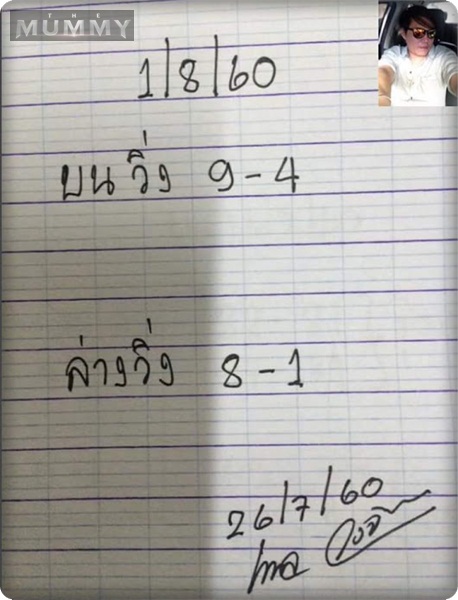 THE
MUMMY
1/8/60
บน วิ่ง 9-4
ล่างวิ่ง 8-1
26/7/60